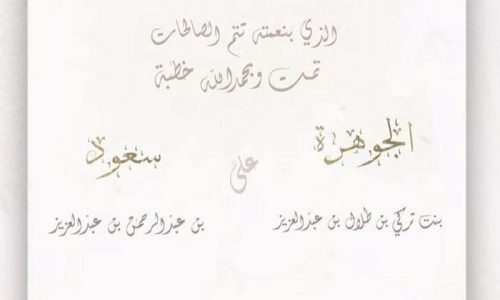 الذي بنعمته تتم الصالحات
تمت وبحمدالله خطبة
الجوهرة
على
سعود
بنت تركي بن طلال بن عبدالعزيز
بن عبدالرحمن بن عبدالعزيز